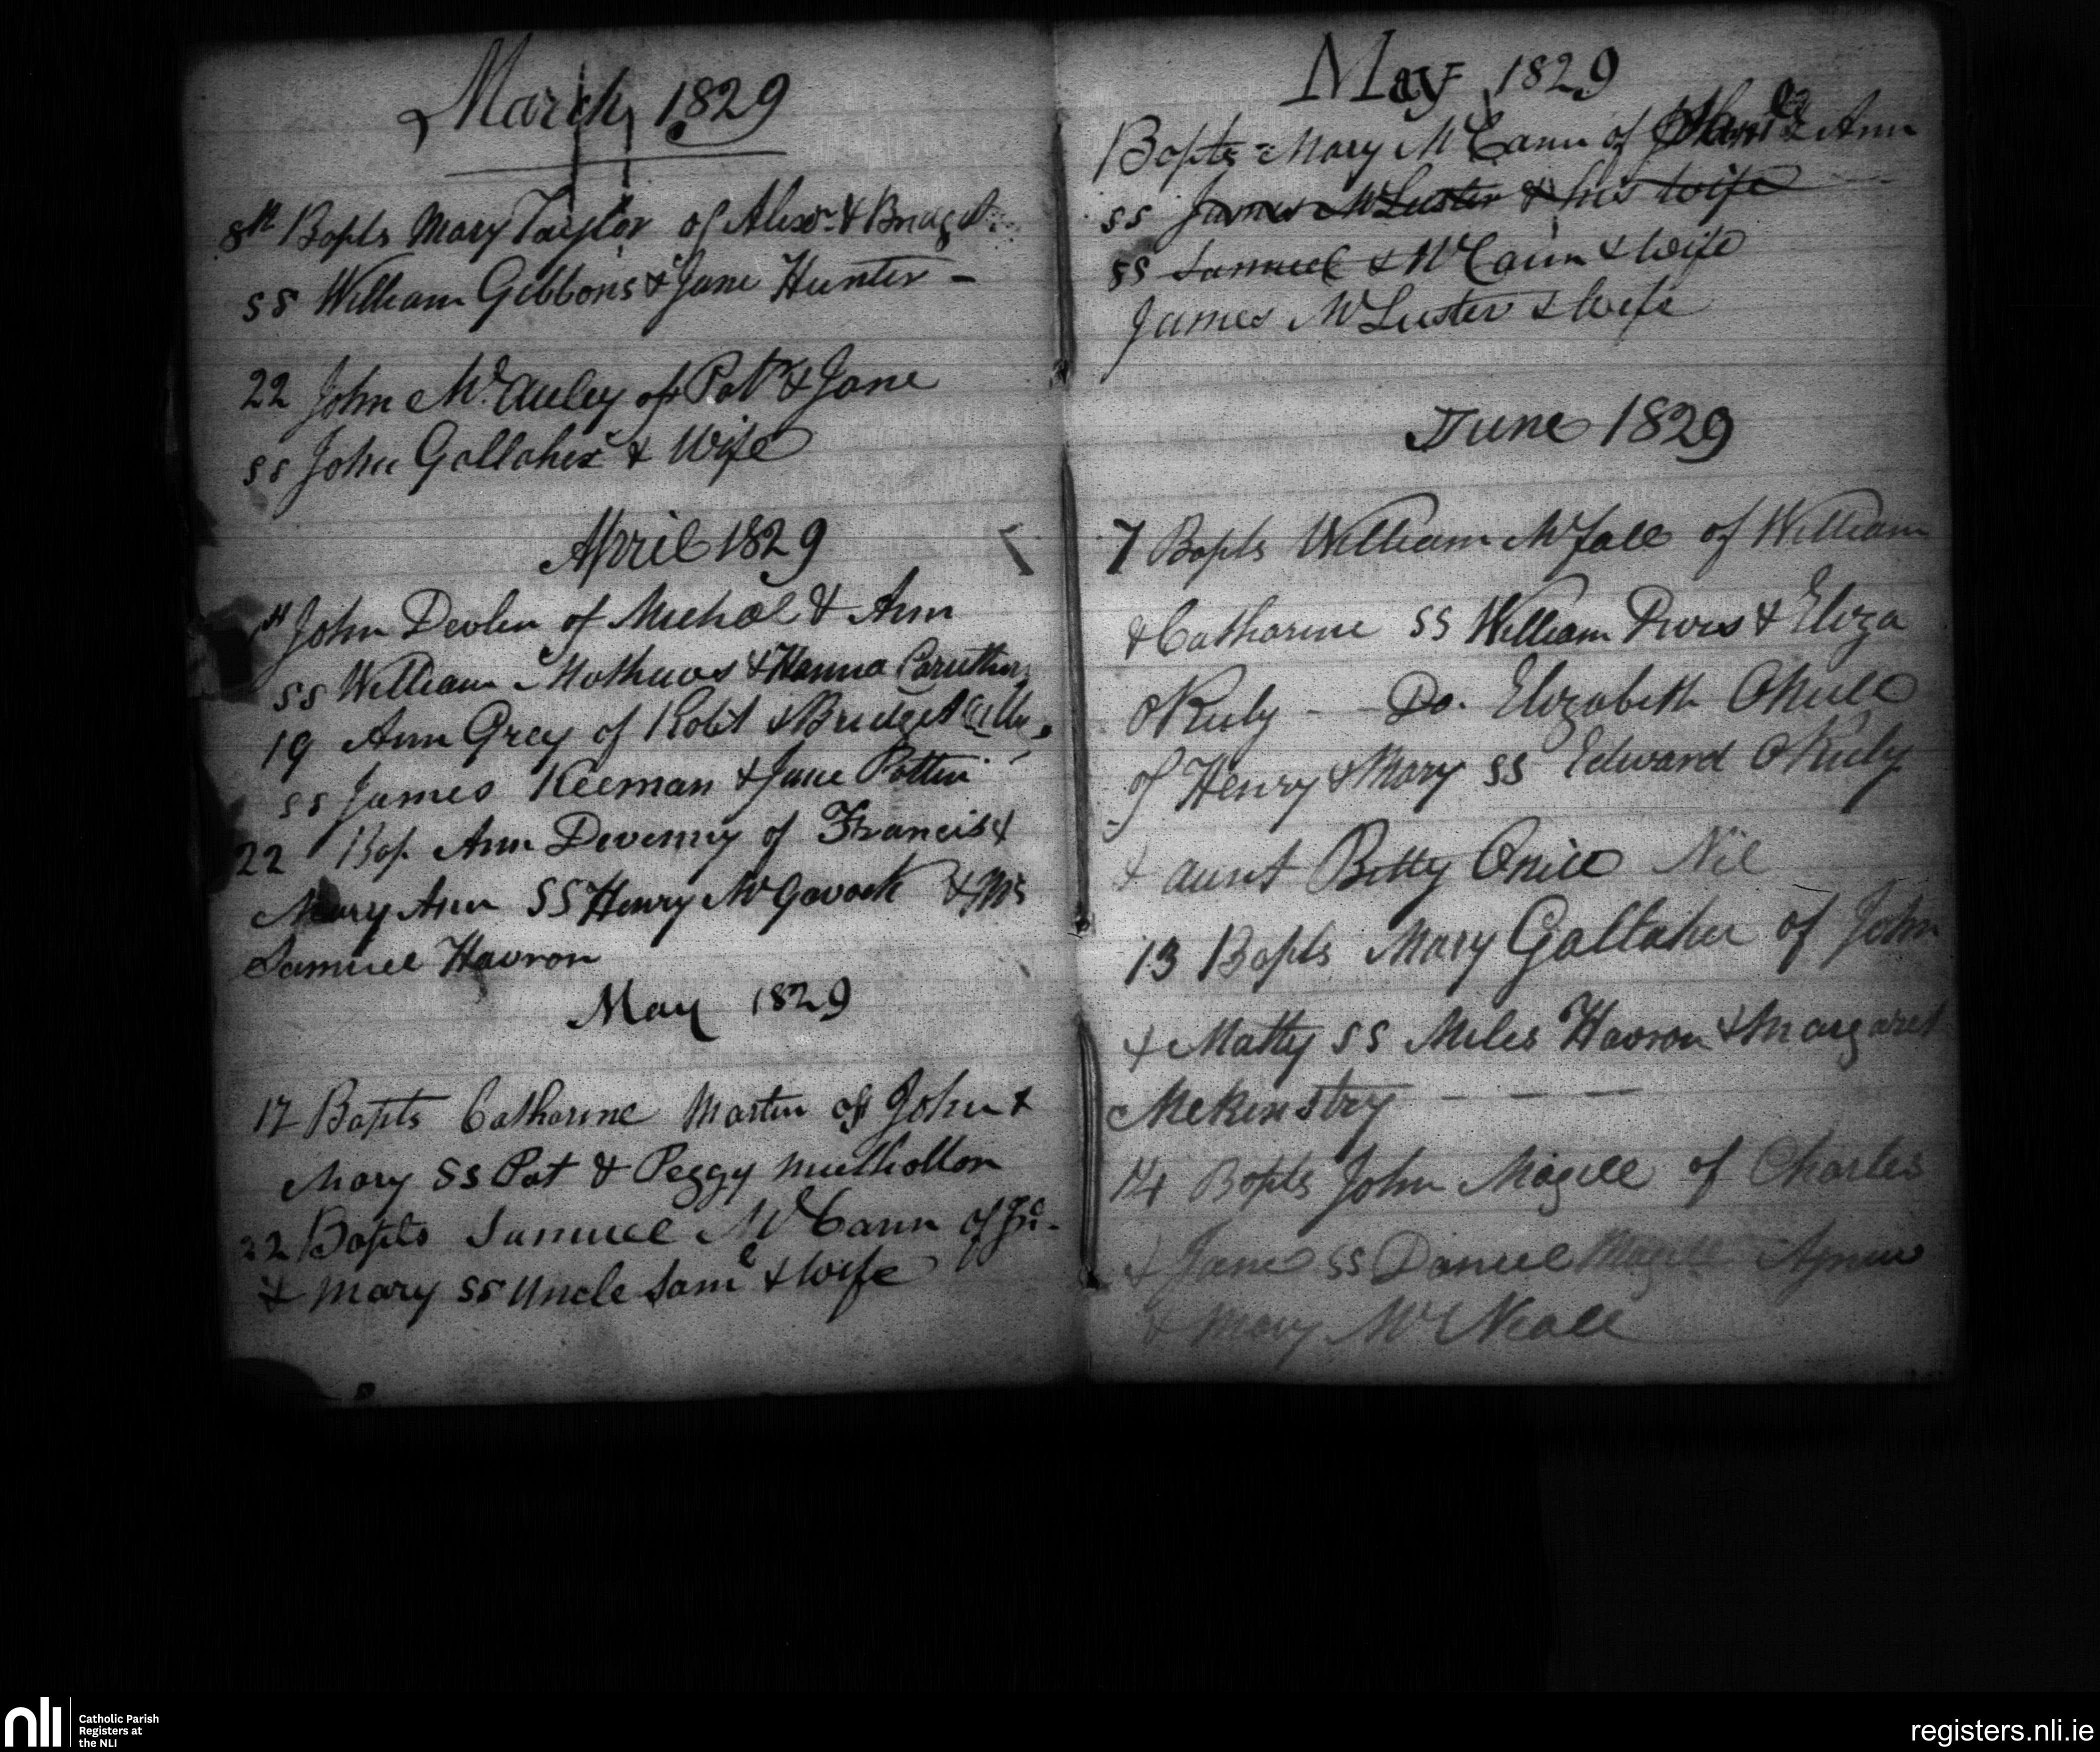 March 1829
8th Bapts Mary Taylor of Alexr. & Bridget
SS William Gibbons & Jane Hunter -
22 John Mc. Auley of Patk & Jane
SS John Gallaher & Wife
April 1829
1st John Devlin of Michael & Ann
SS William Mathews & Hanna Caruthers
19 Ann Grey of Robt & Bridget
SS James Keenan & Jane Potter
22 Bap. Ann Devenny of Francis &
Mary Ann SS Henry McGavock & Mrs
Samuel Havron
May 1829
17 Bapts Catharine Martin of John &
Mary SS Pat & Peggy Mulhollon
22 Bapts Samuel McCann of Jno.
& Mary SS Uncle Saml & Wife
May 1829
Bapts = Mary McCann of & Ann
SS James McLuster & his wife
SS Samuel & McCann & Wife
James McLuster & Wife
June 1829
7 Bapts William Mcfall of William
& Catharine SS William & Eliza
OKiely - - Do. Elizabeth ONeill
of Henry & Mary SS Edward OKiely
& aunt Betty Oneill Nil
13 Bapts Mary Gallaher of John
& Matty SS Miles Havron & Margaret
McKinstry - - -
14 Bapts John Magill of Charles
& Jane SS Daniel Magill Agnew
& Mary McNeall
nli
Catholic Parish
Registers at
the NLI
registers.nli.ie